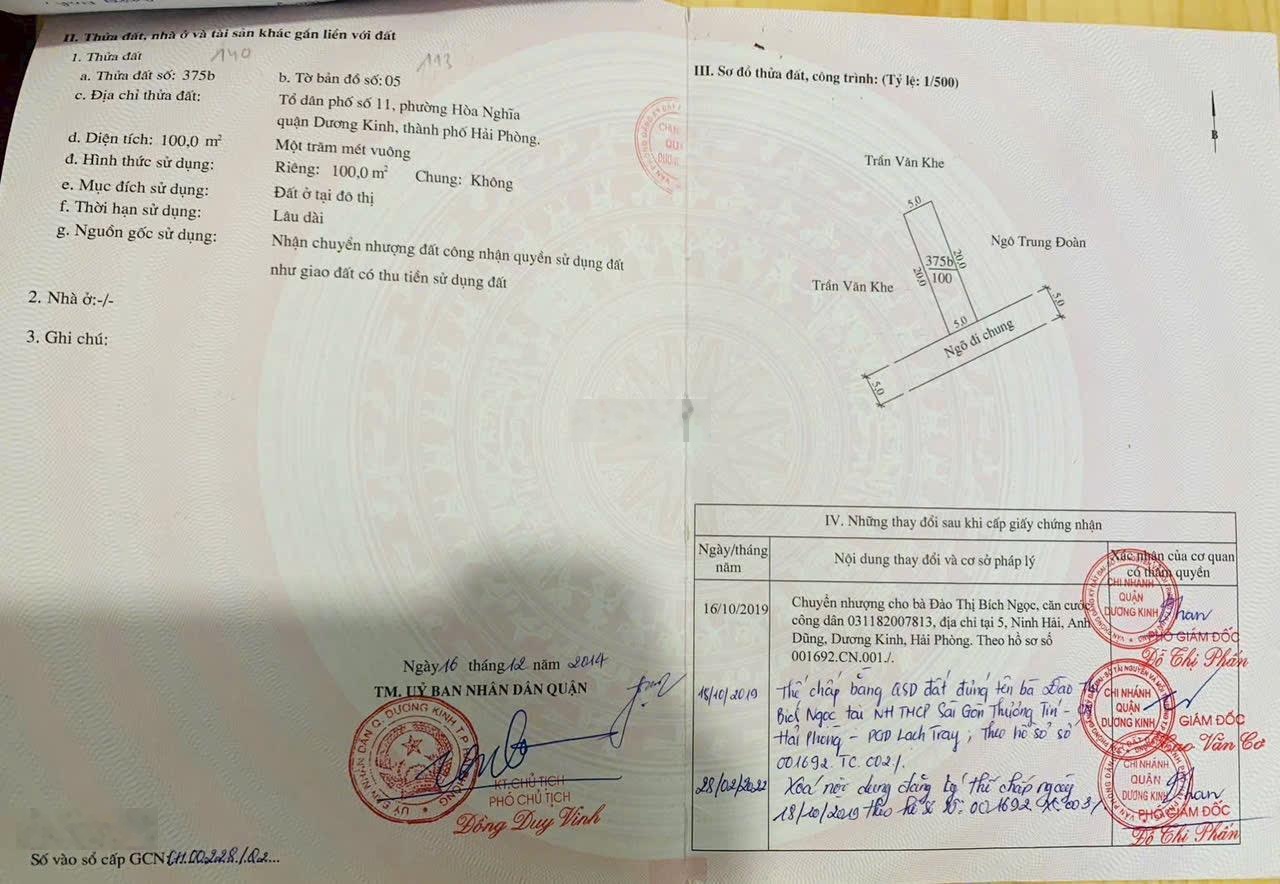 II. Thửa đất, nhà ở và tài sản khác gắn liền với đất
1. Thửa đất
140
113
a. Thửa đất số: 375b
b. Tờ bản đồ số: 05
c. Địa chỉ thửa đất:
Tổ dân phố số 11, phường Hòa Nghĩa
quận Dương Kinh, thành phố Hải Phòng.
d. Diện tích: 100,0 m²
Một trăm mét vuông
đ. Hình thức sử dụng:
Riêng: 100,0 m² Chung: Không
e. Mục đích sử dụng:
Đất ở tại đô thị
f. Thời hạn sử dụng:
Lâu dài
g. Nguồn gốc sử dụng:
Nhận chuyển nhượng đất công nhận quyền sử dụng đất
như giao đất có thu tiền sử dụng đất
2. Nhà ở:-/-
3. Ghi chú:
Ngày 16 tháng 12 năm 2014
TM. UỶ BAN NHÂN DÂN QUẬN
KT.CHỦ TỊCH
PHÓ CHỦ TỊCH
Đồng Duy Vinh
Số vào sổ cấp GCN CH.00228.1.Q2...
III. Sơ đồ thửa đất, công trình: (Tỷ lệ: 1/500)
B
Trần Văn Khe
5.0
Ngô Trung Đoàn
375b
100
20.0
20.0
Trần Văn Khe
5.0
5.0
Ngõ đi chung
5.0
IV. Những thay đổi sau khi cấp giấy chứng nhận
Ngày/tháng năm
Nội dung thay đổi và cơ sở pháp lý
Xác nhận của cơ quan có thẩm quyền
16/10/2019
Chuyển nhượng cho bà Đào Thị Bích Ngọc, căn cước
công dân 031182007813, địa chỉ tại 5, Ninh Hải, Anh
Dũng, Dương Kinh, Hải Phòng. Theo hồ sơ số
001692.CN.001./.
CHI NHÁNH
QUẬN
DƯƠNG KINH
PHÓ GIÁM ĐỐC
Đỗ Thị Phấn
18/10/2019
Thế chấp bằng QSD đất đứng tên bà Đào Thị
Bích Ngọc tại NH TMCP Sài Gòn Thương Tín - CN
Hải Phòng - PGD Lạch Tray; theo hồ sơ số
001692.TC.002./.
CHI NHÁNH
QUẬN
DƯƠNG KINH
GIÁM ĐỐC
Cao Văn Cơ
28/02/2022
Xoá nội dung đăng ký thế chấp ngày
18/10/2019 theo hồ sơ số: 001692.XC.003/
CHI NHÁNH
QUẬN
DƯƠNG KINH
PHÓ GIÁM ĐỐC
Đỗ Thị Phấn